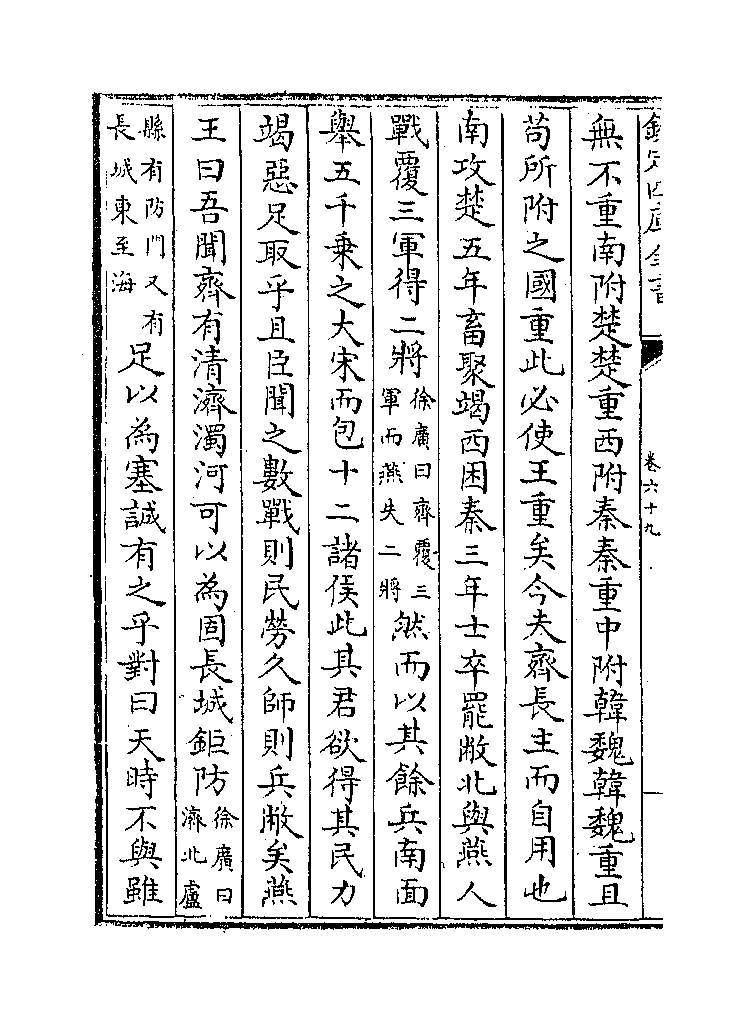 欽定四庫全書
卷六十九
無不重南附楚楚重西附秦秦重中附韓魏韓魏重且
苟所附之國重此必使王重矣今夫齊長主而自用也
南攻楚五年畜聚竭西困秦三年士卒罷敝北與燕人
戰覆三軍得二將徐廣曰齊覆三軍而燕失二將然而以其餘兵南面
舉五千乗之大宋而包十二諸侯此其君欲得其民力
竭惡足取乎且臣聞之數戰則民勞久師則兵敝矣燕
王曰吾聞齊有清濟濁河可以為固長城鉅防徐廣曰濟北盧
縣有防門又有長城東至海足以為塞誠有之乎對曰天時不與雖